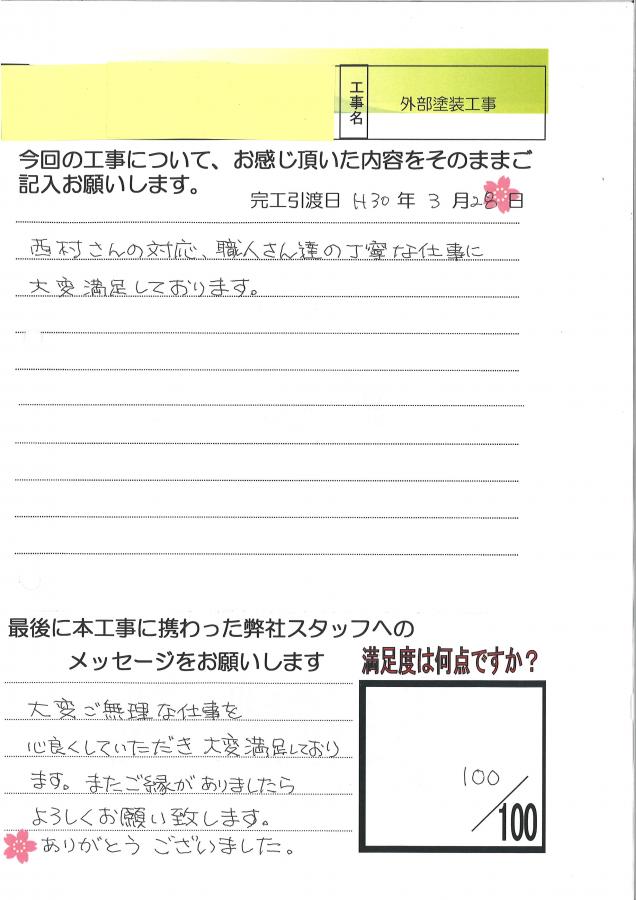 工事名 外部塗装工事
今回の工事について、お感じ頂いた内容をそのままご
記入お願いします。
完工引渡日 H30 年 3 月 28 日
西村さんの対応、職人さん達の丁寧な仕事に
大変満足しております。
最後に本工事に携わった弊社スタッフへの
メッセージをお願いします
満足度は何点ですか?
大変ご無理な仕事を
心良くしていただき 大変満足しており
ます。またご縁がありましたら
よろしくお願い致します。
ありがとう ございました。
100/100